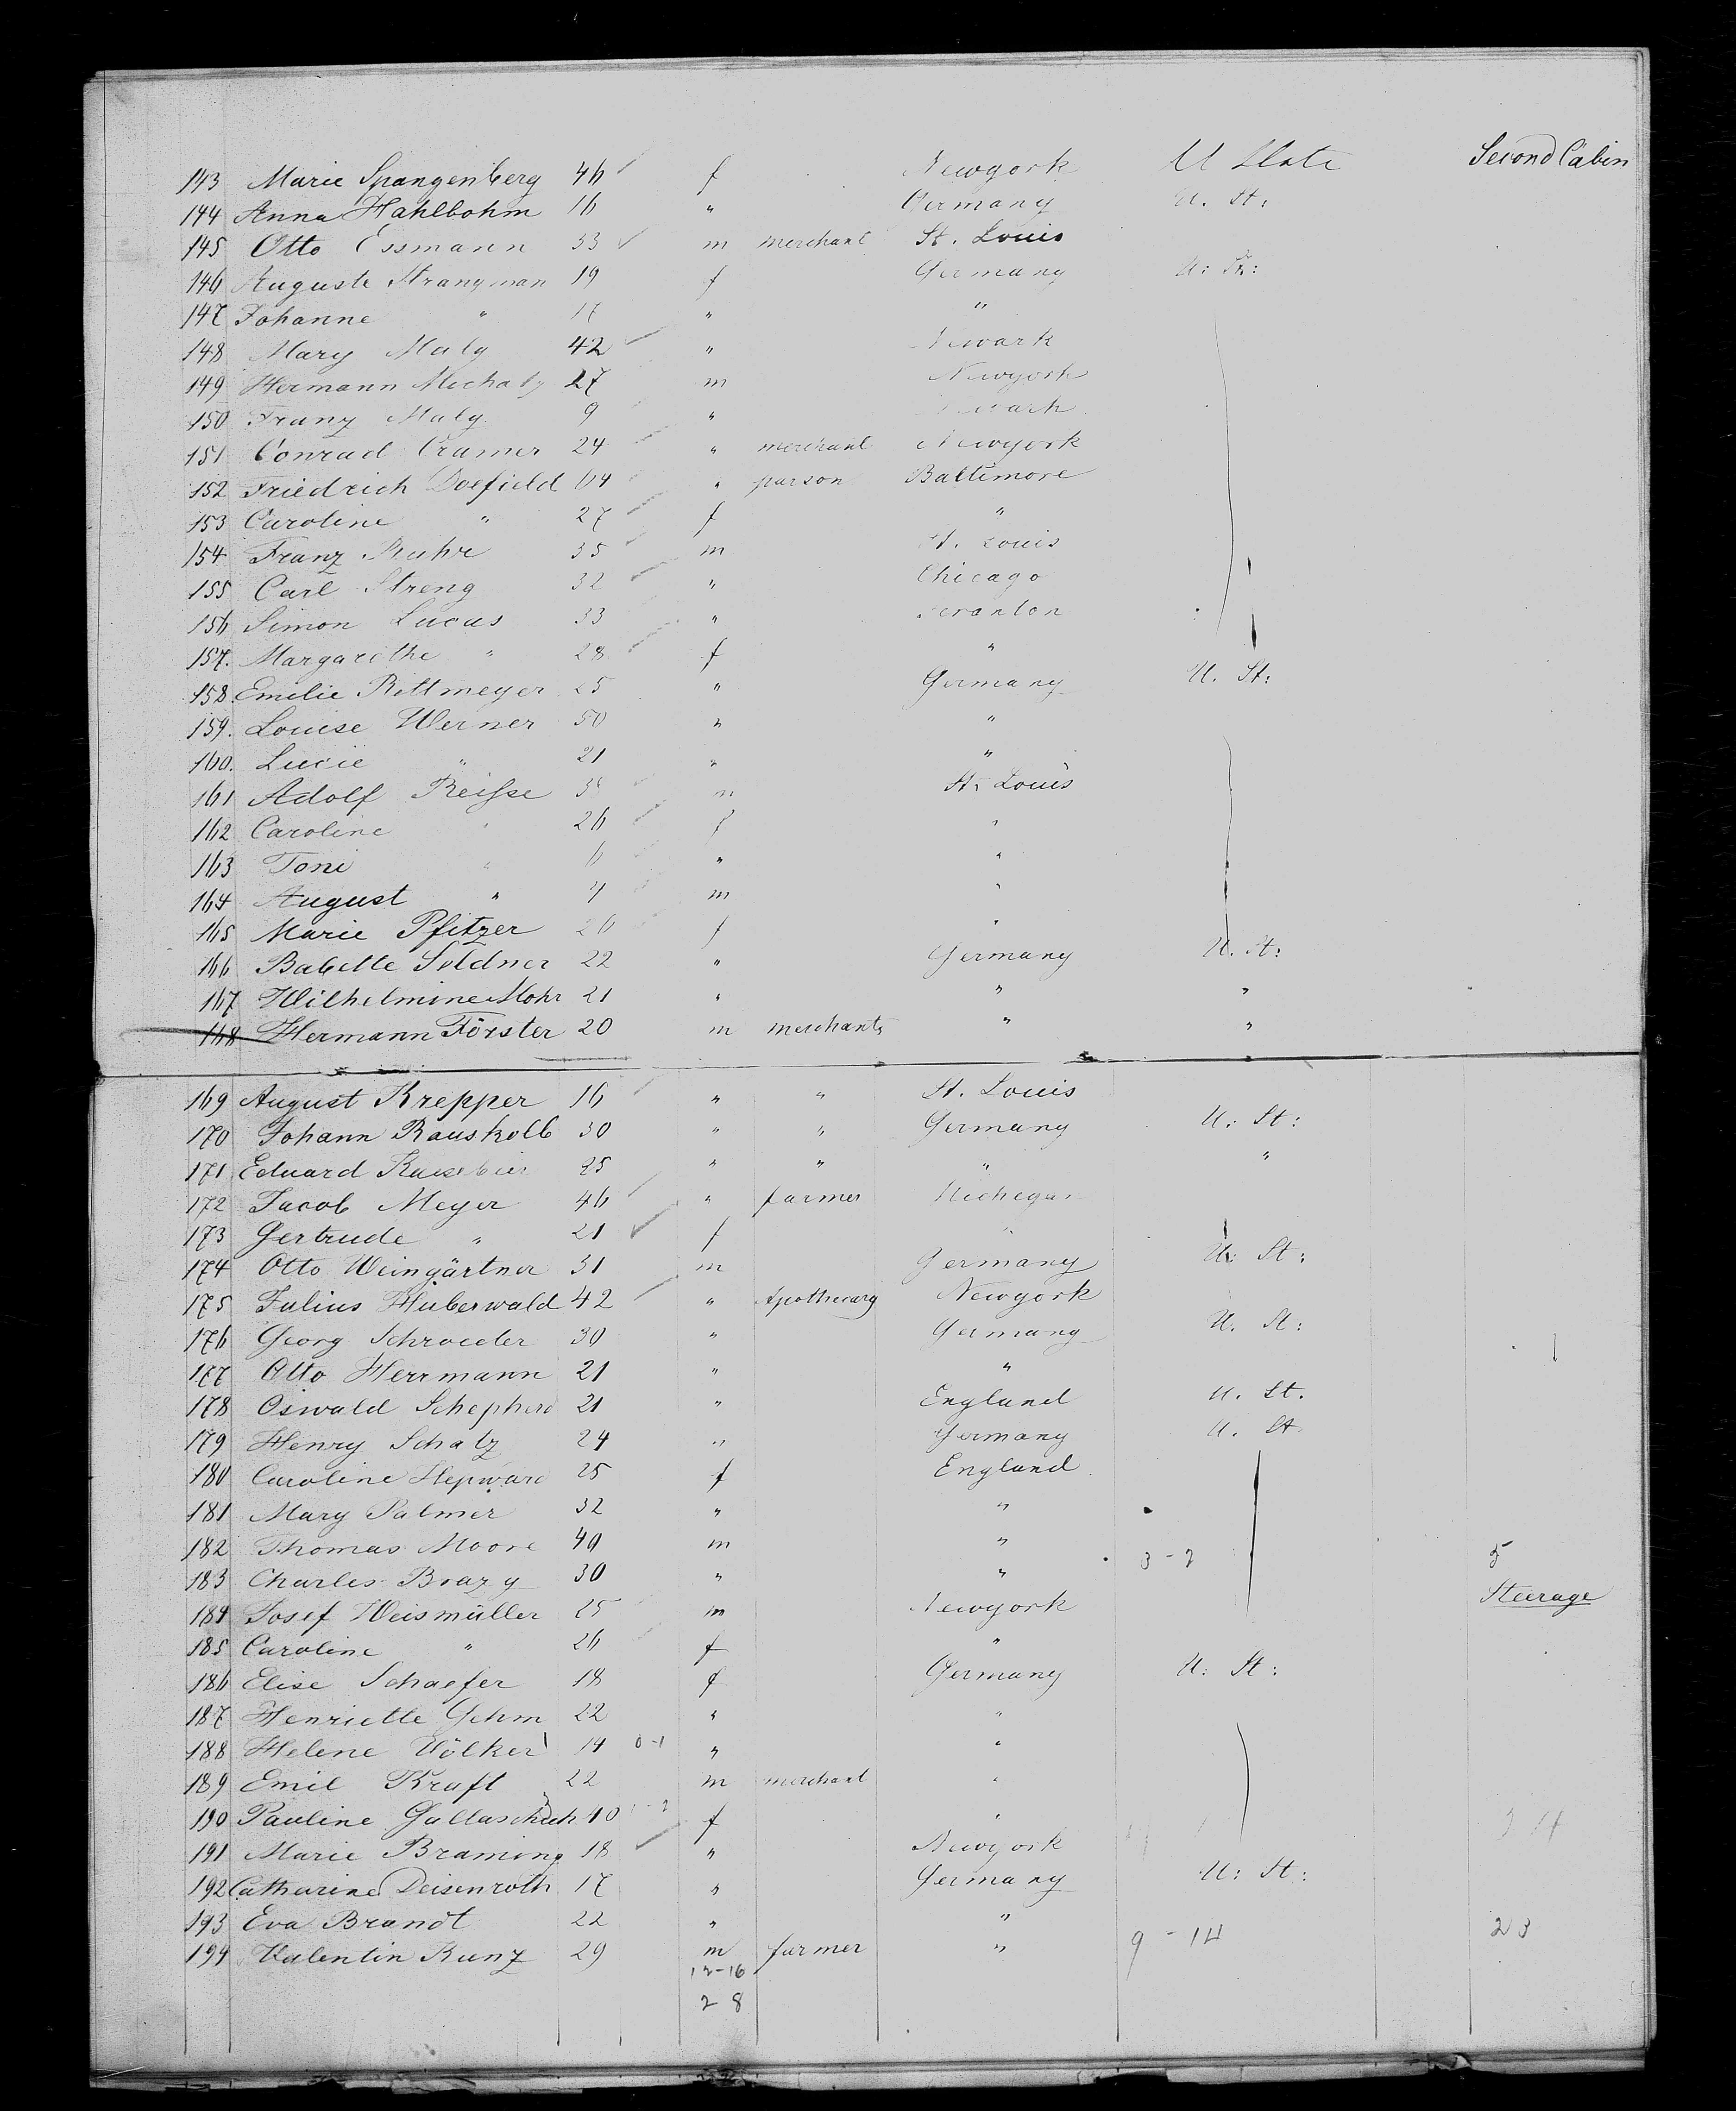 Second Cabin
143 Marie Spangenberg 46 f Newyork U State
144 Anna Hahlbohm 16 " Germany U. St:
145 Otto Essmann 33 m merchant St. Louis
146 Auguste Strangman 19 f Germany U: St:
147 Johanne " 17 " "
148 Mary Maly 42 " Newark
149 Hermann 27 m Newyork
150 Franz Maly 9 " Newark
151 Conrad Cramer 24 " merchant Newyork
152 Friedrich 64 " parson Baltimore
153 Caroline " 27 f "
154 Franz Ruhr 35 m St. Louis
155 Carl Streng 32 " Chicago
156 Simon Lucas 33 " Scranton
157. Margarethe " 28 f "
158. Emilie Rittmeyer 25 " Germany U. St:
159. Louise Werner 50 " "
160. Lucie " 21 " "
161 Adolf Reisse m St. Louis
162 Caroline " 26 f "
163 Toni " 6 " "
164 August " m "
165 Marie Pfitzer 26 f "
166 Babette Soldner 22 " Germany U. St:
167 Wilhelmine Mohr 21 " " "
168 Hermann Förster 20 m merchants " "
169 August Krepper 16 " " St. Louis
170 Johann Rauskolb 30 " " Germany U: St:
171 Eduard 25 " " " "
172 Jacob Meyer 46 " farmer Michegan
173 Gertrude " 21 f "
174 Otto Weingärtner 31 m Germany U: St:
175 Julius Huberwald 42 " Apothecary Newyork
176 Georg Schroeder 30 " Germany U. St:
177 Otto Herrmann 21 " "
178 Oswald Schepherd 21 " England U. St.
179 Henry Schatz 24 " Germany U. St
180 Caroline Hepward 25 f England
181 Mary Palmer 32 " "
182 Thomas Moore 40 m "
183 Charles Brazy 30 " " 3 - 2 5
Steerage
184 Josef Weismüller 25 m Newyork
185 Caroline " 26 f "
186 Elise Schaefer 18 f Germany U: St:
187 Henriette Gehm 22 " "
188 Helene Völker 14 0-1 " "
189 Emil Kraft 22 m merchant "
190 Pauline 40 f "
191 Marie Braming 18 " Newyork
192 Catharine Deisenroth 17 " Germany U: St:
193 Eva Brandt 22 " "
194 Valentin Kunz 29 m farmer " 9 - 14 23
12-16
2 8